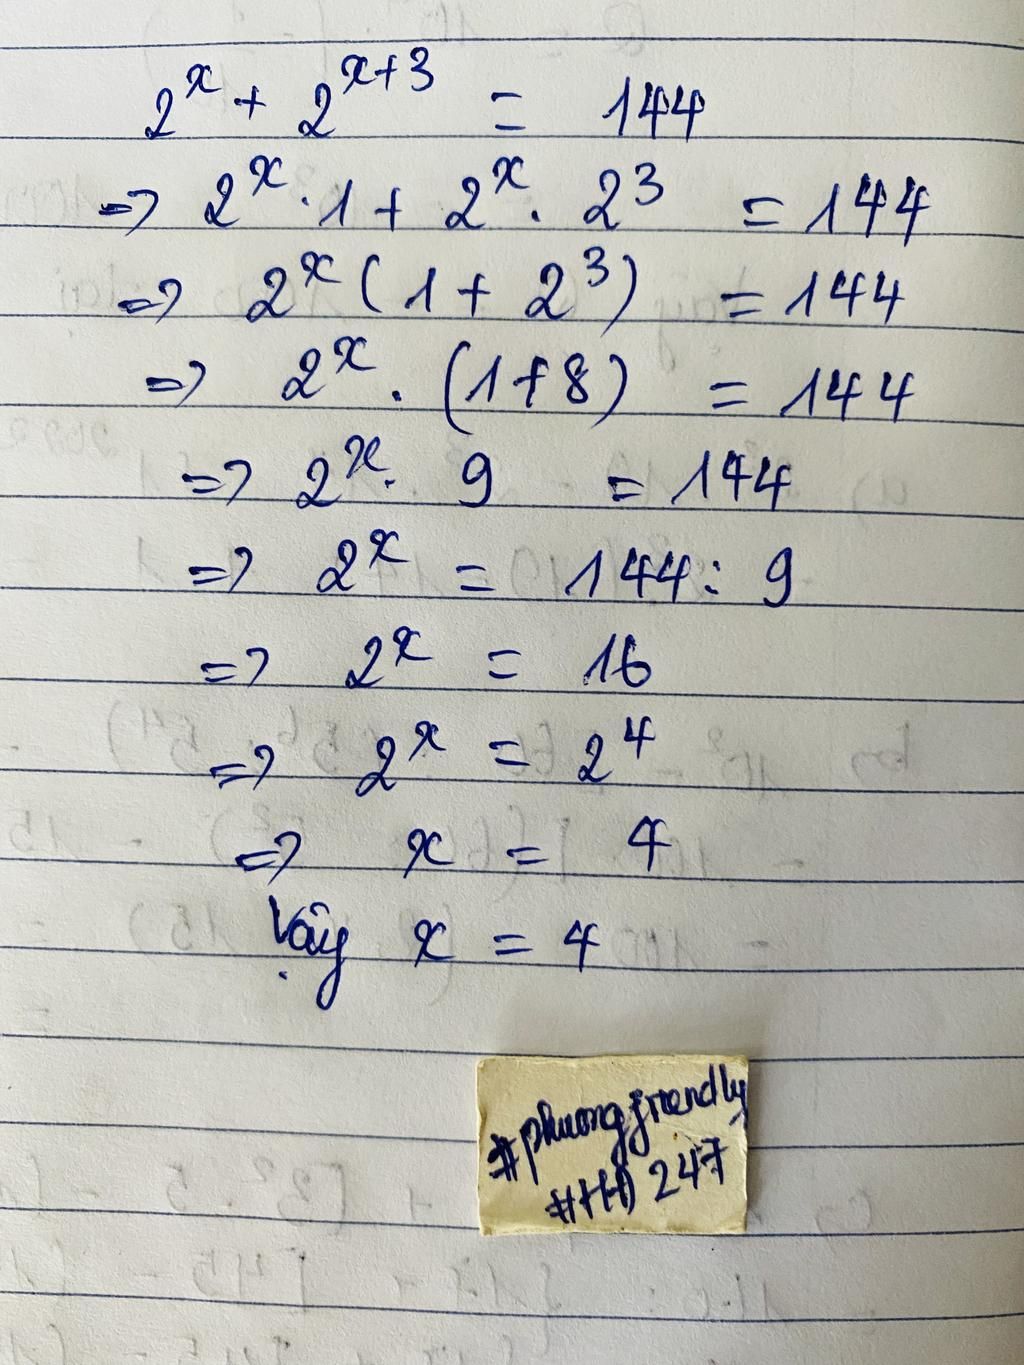 2^x + 2^{x+3} = 144
=> 2^x . 1 + 2^x . 2^3 = 144
=> 2^x ( 1 + 2^3 ) = 144
=> 2^x . (1+8) = 144
=> 2^x . 9 = 144
=> 2^x = 144 : 9
=> 2^x = 16
=> 2^x = 2^4
=> x = 4
Vậy x = 4
#phuongfriendly
#HĐ 247